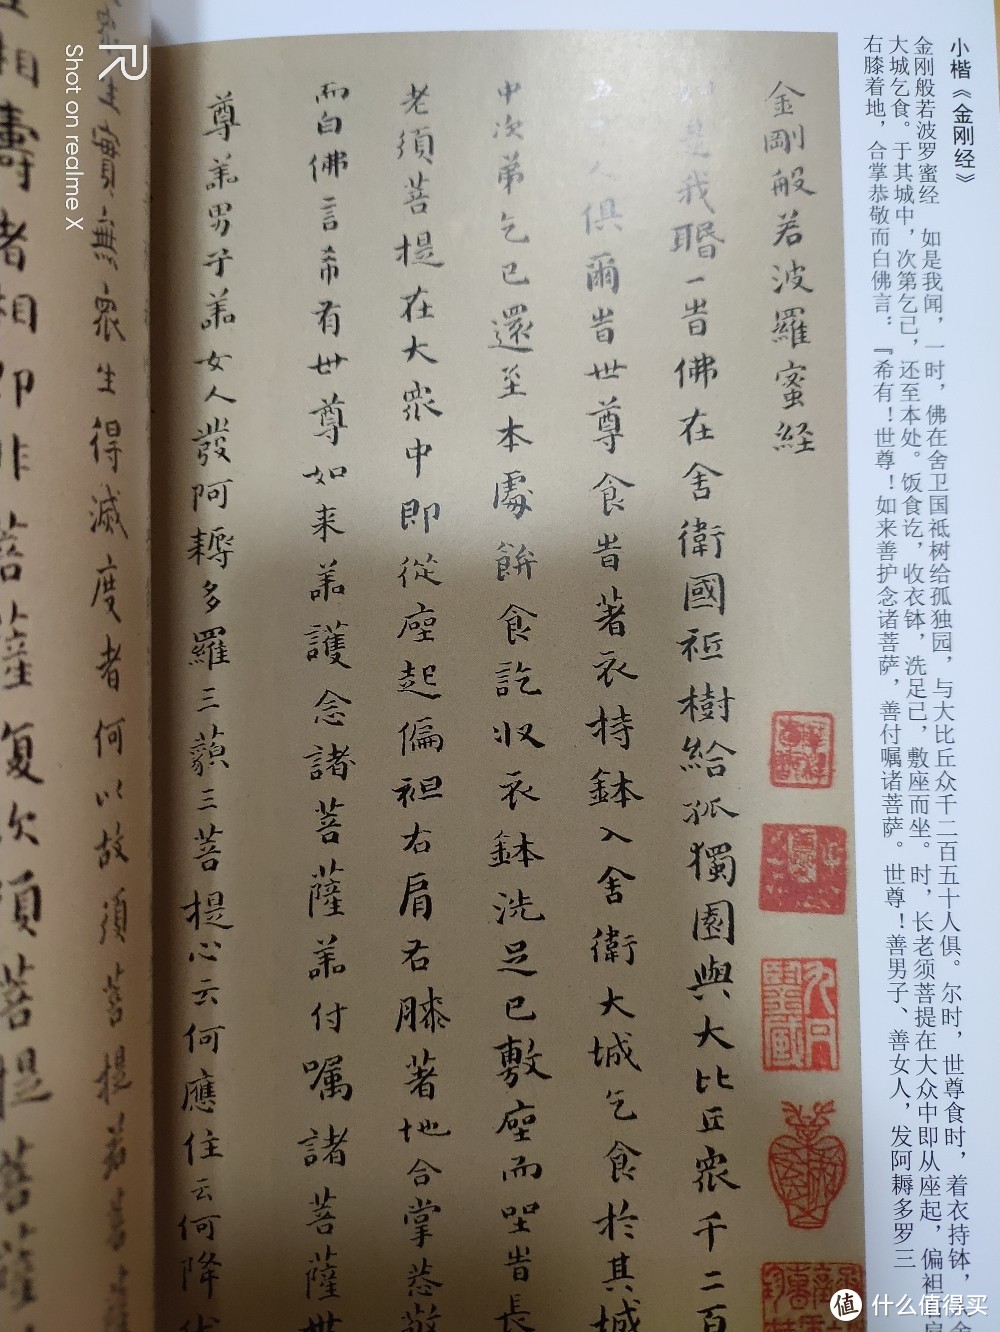 小楷《金刚经》
金刚般若波罗蜜经　如是我闻，一时，佛在舍卫国祗树给孤独园，与大比丘众千二百五十人俱。尔时，世尊食时，着衣持钵，
大城乞食。于其城中，次第乞己，还至本处。饭食讫，收衣钵，洗足己，敷座而坐。时，长老须菩提在大众中即从座起，偏袒右肩
右膝着地，合掌恭敬而白佛言：『希有！世尊！如来善护念诸菩萨，善付嘱诸菩萨。世尊！善男子、善女人，发阿耨多罗三
金剛般若波羅蜜経
是我聞一時佛在舍衛國祗樹給孤獨園與大比丘衆千二百
人俱爾時世尊食時著衣持鉢入舍衛大城乞食於其城
中次第乞已還至本處飯食訖收衣鉢洗足已敷座而坐時長
老須菩提在大衆中即從座起偏袒右肩右膝著地合掌恭敬
而白佛言希有世尊如来善護念諸菩薩善付囑諸菩薩世
尊善男子善女人發阿耨多羅三藐三菩提心云何應住云何降伏
生實無衆生得滅度者何以故須菩提若菩薩
相壽者相即非菩薩復次須菩提菩薩
Shot on realme X
值 什么值得买